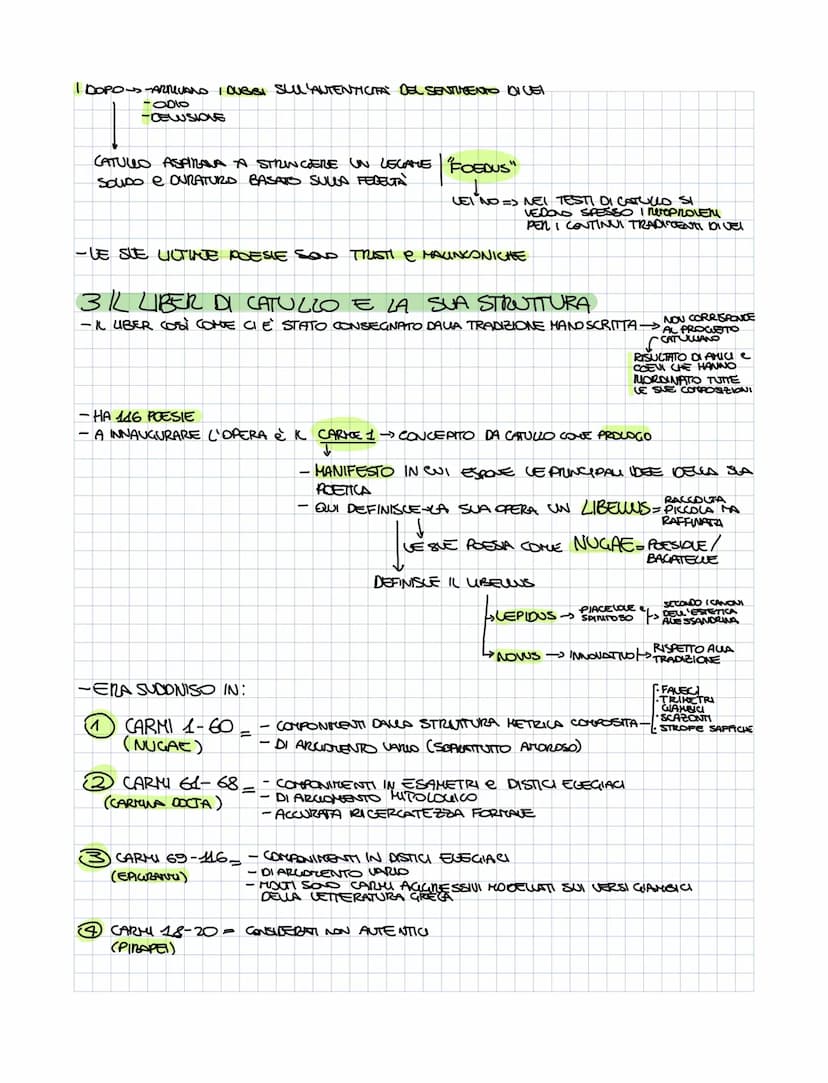 ! DOPO → -ARRIVANO I DUBBI SULL'AUTENTICITÀ DEL SENTIMENTO DI LEI
- ODIO
- DELUSIONE
CATULLO ASPIRAVA A STRINGERE UN LEGAME
SOLIDO e DURATURO BASATO SULLA FEDELTÀ
"FOEDUS"
LEI NO => NEI TESTI DI CATULLO SI
VEDONO SPESSO I RIMPROVERI
PER I CONTINUI TRADIMENTI DI LEI
- LE SUE ULTIME POESIE SONO TRISTI e MALINKONICHE
3 IL LIBER DI CATULLO E LA SUA STRUTTURA
- IL LIBER COSÌ COME CI E' STATO CONSEGNATO DALLA TRADIZIONE MANOSCRITTA →
NON CORRISPONDE
AL PROGETTO
CATULLIANO
RISULTATO DI AMICI e
COEVI CHE HANNO
RIORDINATO TUTTE
LE SUE COMPOSIZIONI
- HA 116 POESIE
- A INNAUGURARE L'OPERA È IL CARME 1 → CONCEPITO DA CATULLO COME PROLOGO
- MANIFESTO IN CUI ESPONE LE PRINCIPALI IDEE DELLA SUA
POETICA
- QUI DEFINISCE → LA SUA OPERA UN LIBELLUS = RACCOLTA
PICCOLA MA
RAFFINATA
LE SUE POESIA COME NUGAE = POESIOLE /
BAGATELLE
DEFINISCE IL LIBELLUS
LEPIDUS → PIACEVOLE e
SPIRITOSO
SECONDO I CANONI
DELL'ESTETICA
ALESSANDRINA
NOVUS → INNOVATIVO → RISPETTO ALLA
TRADIZIONE
- ERA SUDDIVISO IN:
1 CARMI 1-60 = - COMPONIMENTI DALLA STRUTTURA METRICA COMPOSITA
(NUGAE) - DI ARGOMENTO VARIO (SOPRATTUTTO AMOROSO)
· FALECI
· TRIMETRI
GIAMBICI
· SCAZONTI
· STROFE SAFFICHE
2 CARMI 61-68 = - COMPONIMENTI IN ESAMETRI e DISTICI ELEGIACI
(CARMINA DOCTA) - DI ARGOMENTO MITOLOGICO
- ACCURATA RICERCATEZZA FORMALE
3 CARMI 69-116 = - COMPONIMENTI IN DISTICI ELEGIACI
(EPIGRAMMI) - DI ARGOMENTO VARIO
- MOLTI SONO CARMI AGGRESSIVI MODELLATI SUI VERSI GIAMBICI
DELLA LETTERATURA GRECA
4 CARMI 18-20 = CONSIDERATI NON AUTENTICI
(PIRAPEI)